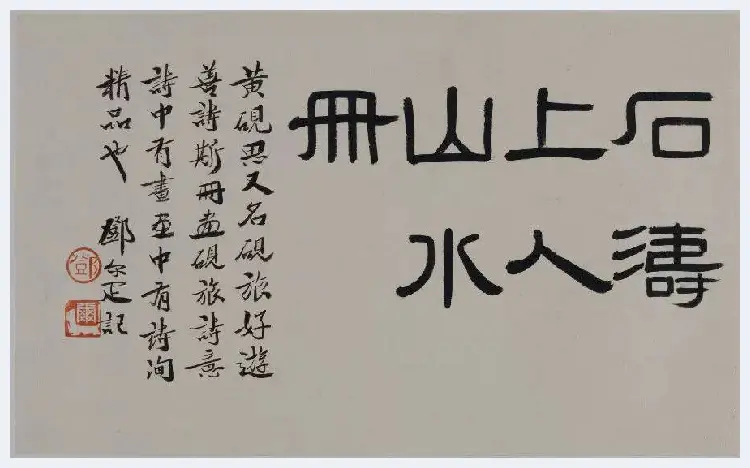 石濤
上人
山水
冊
黃硯思又名硯旅好遊
善詩斯冊畫硯旅詩意
詩中有畫畫中有詩洵
精品也 鄧尔疋記
鄧
爾